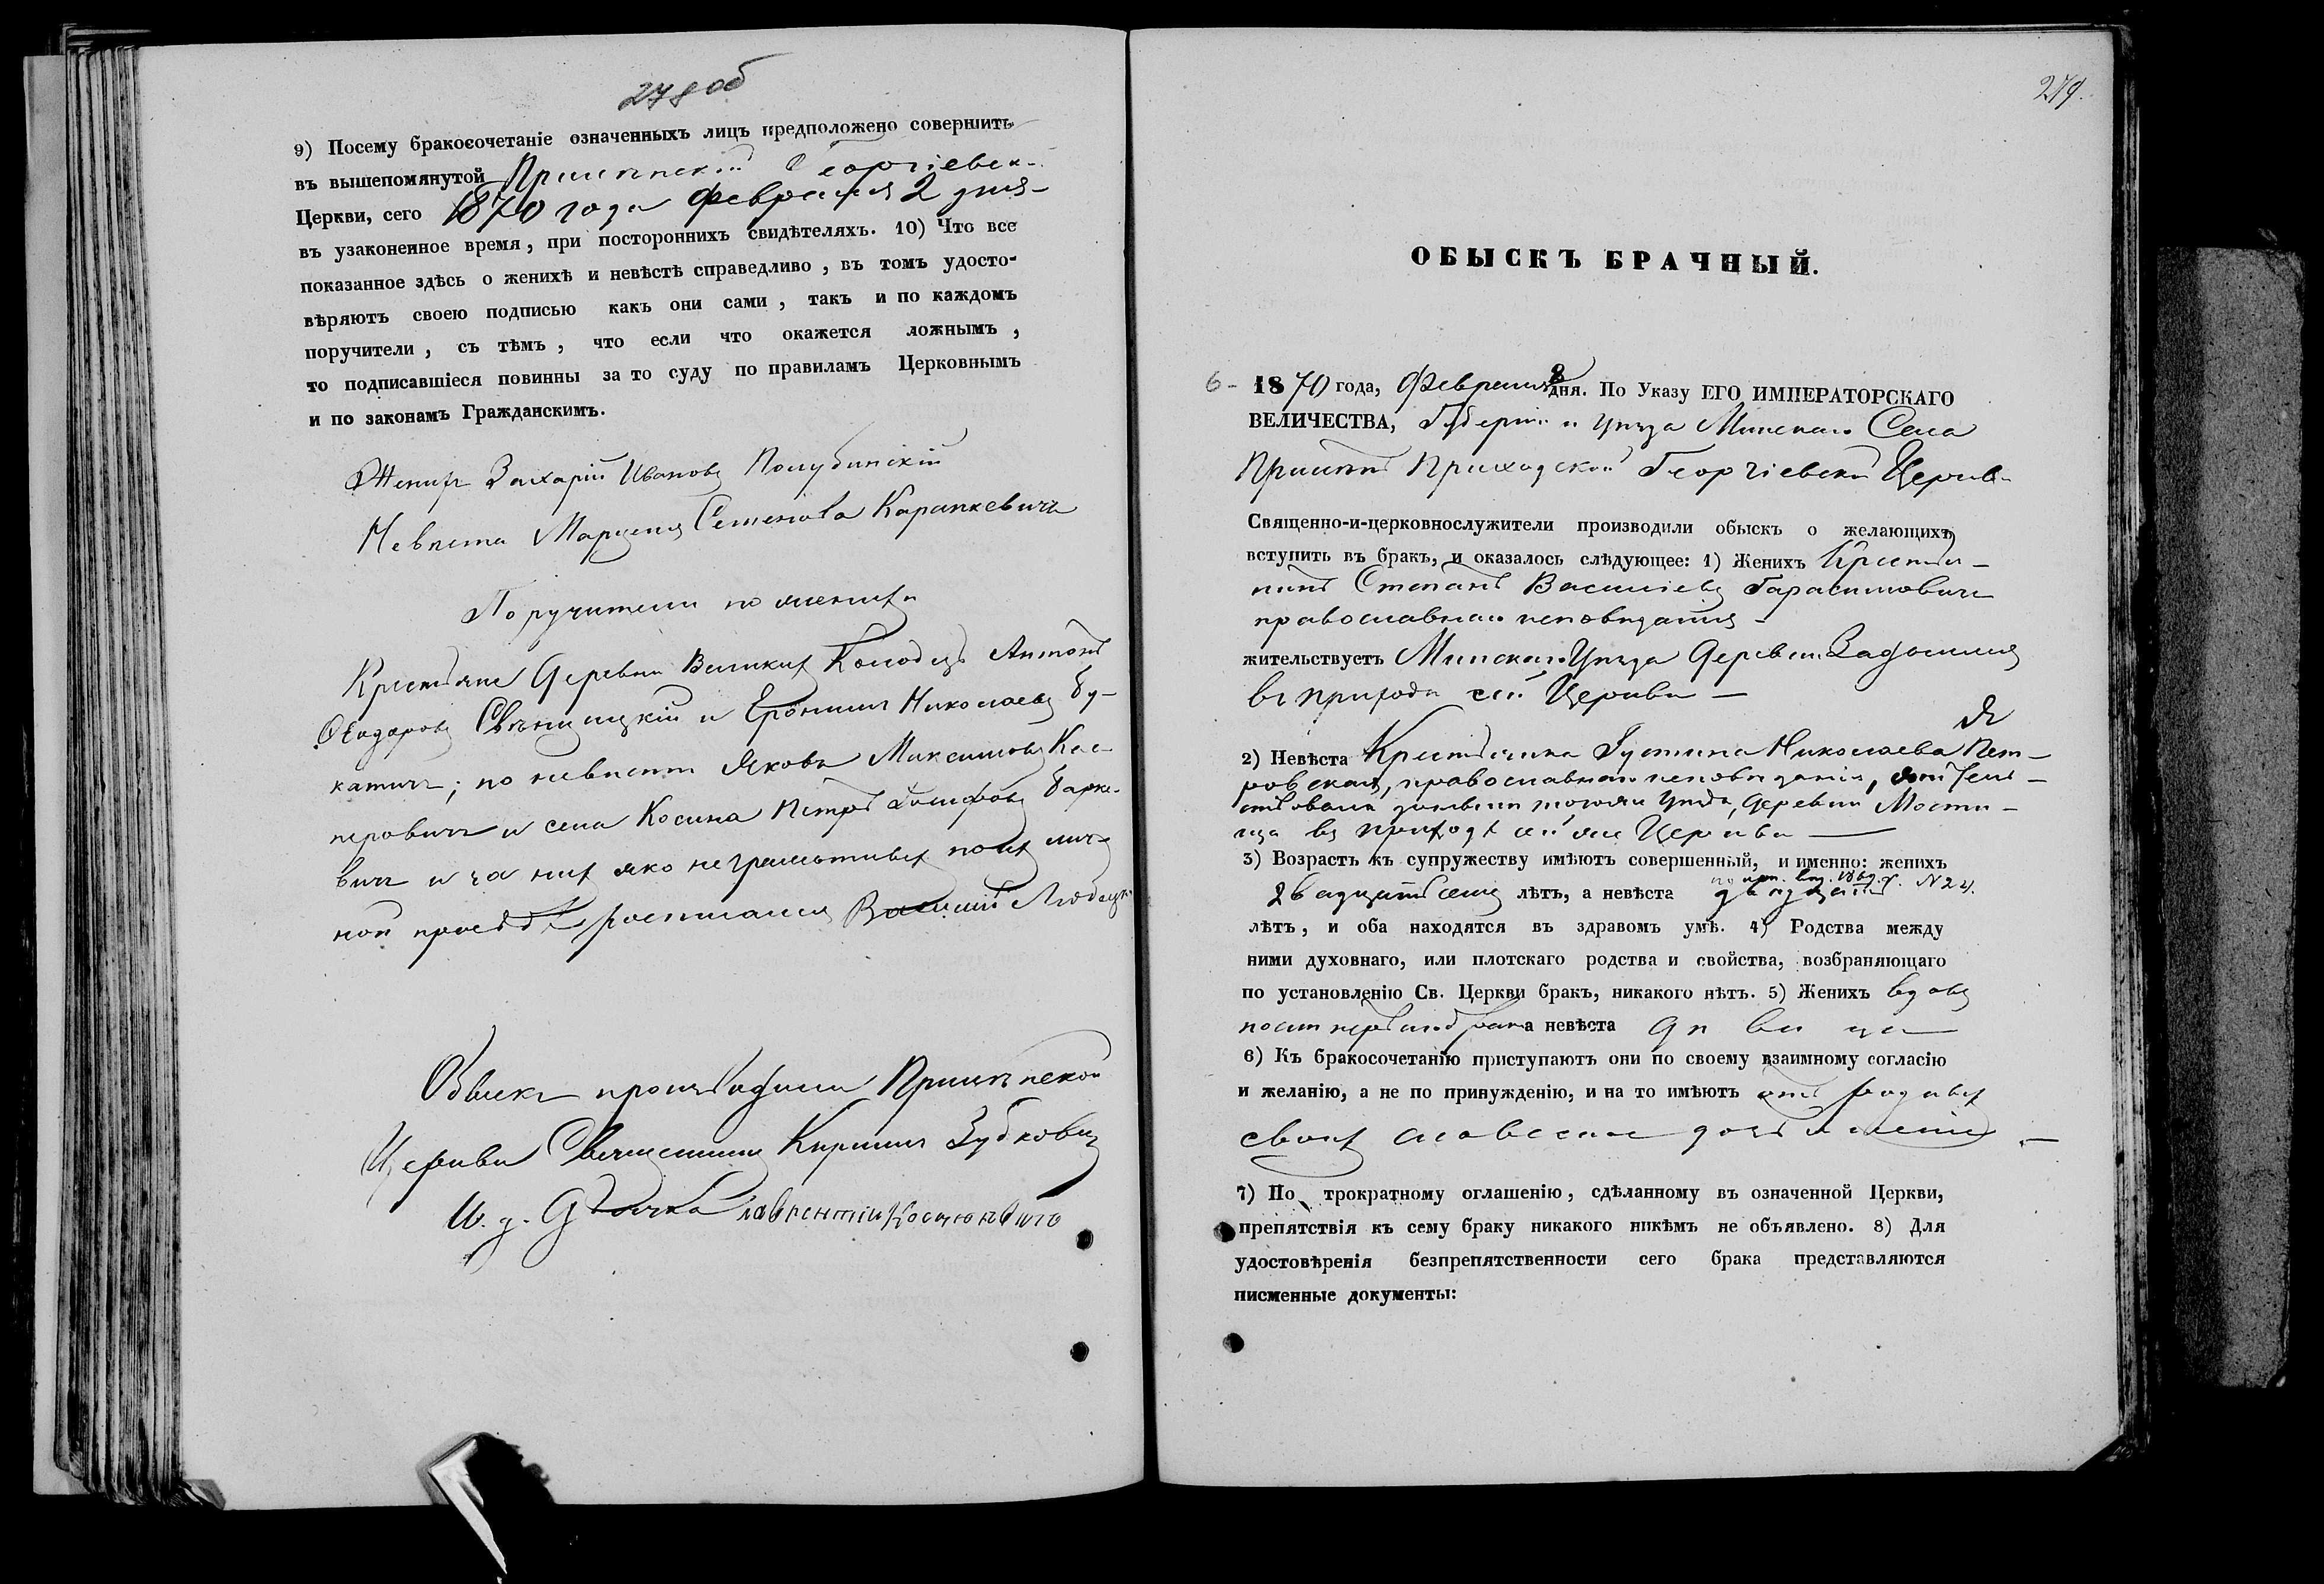 278 об
9) Посему бракосочетаніе означенныхъ лицъ предположено совершить
въ вышепомянутой Прилѣпской Георгіевск-
Церкви, сего 1870 года Февраля 2 дня-
въ узаконенное время, при постороннихъ свидѣтеляхъ. 10) Что все
показанное здѣсь о женихѣ и невѣстѣ справедливо, въ томъ удосто-
вѣряютъ своею подписью какъ они сами, такъ и по каждомъ
поручители, съ тѣмъ, что если что окажется ложнымъ,
то подписавшіеся повинны за то суду по правиламъ Церковнымъ
и по законамъ Гражданскимъ.
Женихъ Захарій Ивановъ Полубинскій
Невѣста Марцеля Семенова Карапкевичъ
Поручители по женихѣ
Крестьяне Деревни Великихъ Колодезь Антонъ
Ѳеодоровъ и Еронимъ Николаевъ Бу-
катичъ; по невѣстѣ Яковъ Максимовъ Кас-
перовичъ и села Косина Петръ Іосифовъ Барке-
вичъ и за нихъ яко неграмотныхъ по ихъ лич-
ной просьбѣ росписался Василій
Обыскъ производили Прилѣпской
Церкви Священникъ Кириллъ Зубковичъ
И. д. Дьячка Лаврентій Костюкевичъ
279.
ОБЫСКЪ БРАЧНЫЙ.
6- 1870 года, Февраля 8 дня. По Указу ЕГО ИМПЕРАТОРСКАГО
ВЕЛИЧЕСТВА, Губерніи и уѣзда Минскаго Села
Прилѣпъ Приходской Георгіевской Церкви
Священно-и-церковнослужители производили обыскъ о желающихъ
вступить въ бракъ, и оказалось слѣдующее: 1) Женихъ Крестья-
нинъ Степанъ Василіевъ Гарасимовичъ
православнаго исповѣданія -
жительствуетъ Минскаго Уѣзда Деревни Задомля
въ приходѣ сей Церкви —
2) Невѣста Крестьянка Густина Николаева Пет-
ровская, православнаго исповѣданія, житель-
ствовала донынѣ того же Уѣзда, Деревни Мости-
ща въ приходѣ сей же Церкви —
3) Возрастъ къ супружеству имѣютъ совершенный, и именно: женихъ
двадцать семь лѣтъ, а невѣста двадцать № 24.
лѣтъ, и оба находятся въ здравомъ умѣ. 4) Родства между
ними духовнаго, или плотскаго родства и свойства, возбраняющаго
по установленію Св. Церкви бракъ, никакого нѣтъ. 5) Женихъ вдовъ
послѣ перваго брака невѣста дѣвица
6) Къ бракосочетанію приступаютъ они по своему взаимному согласію
и желанію, а не по принужденію, и на то имѣютъ отъ родныхъ
своихъ словесное дозволеніе —
7) По трократному оглашенію, сдѣланному въ означенной Церкви,
препятствія къ сему браку никакого никѣмъ не объявлено. 8) Для
удостовѣренія безпрепятственности сего брака представляются
писменные документы: